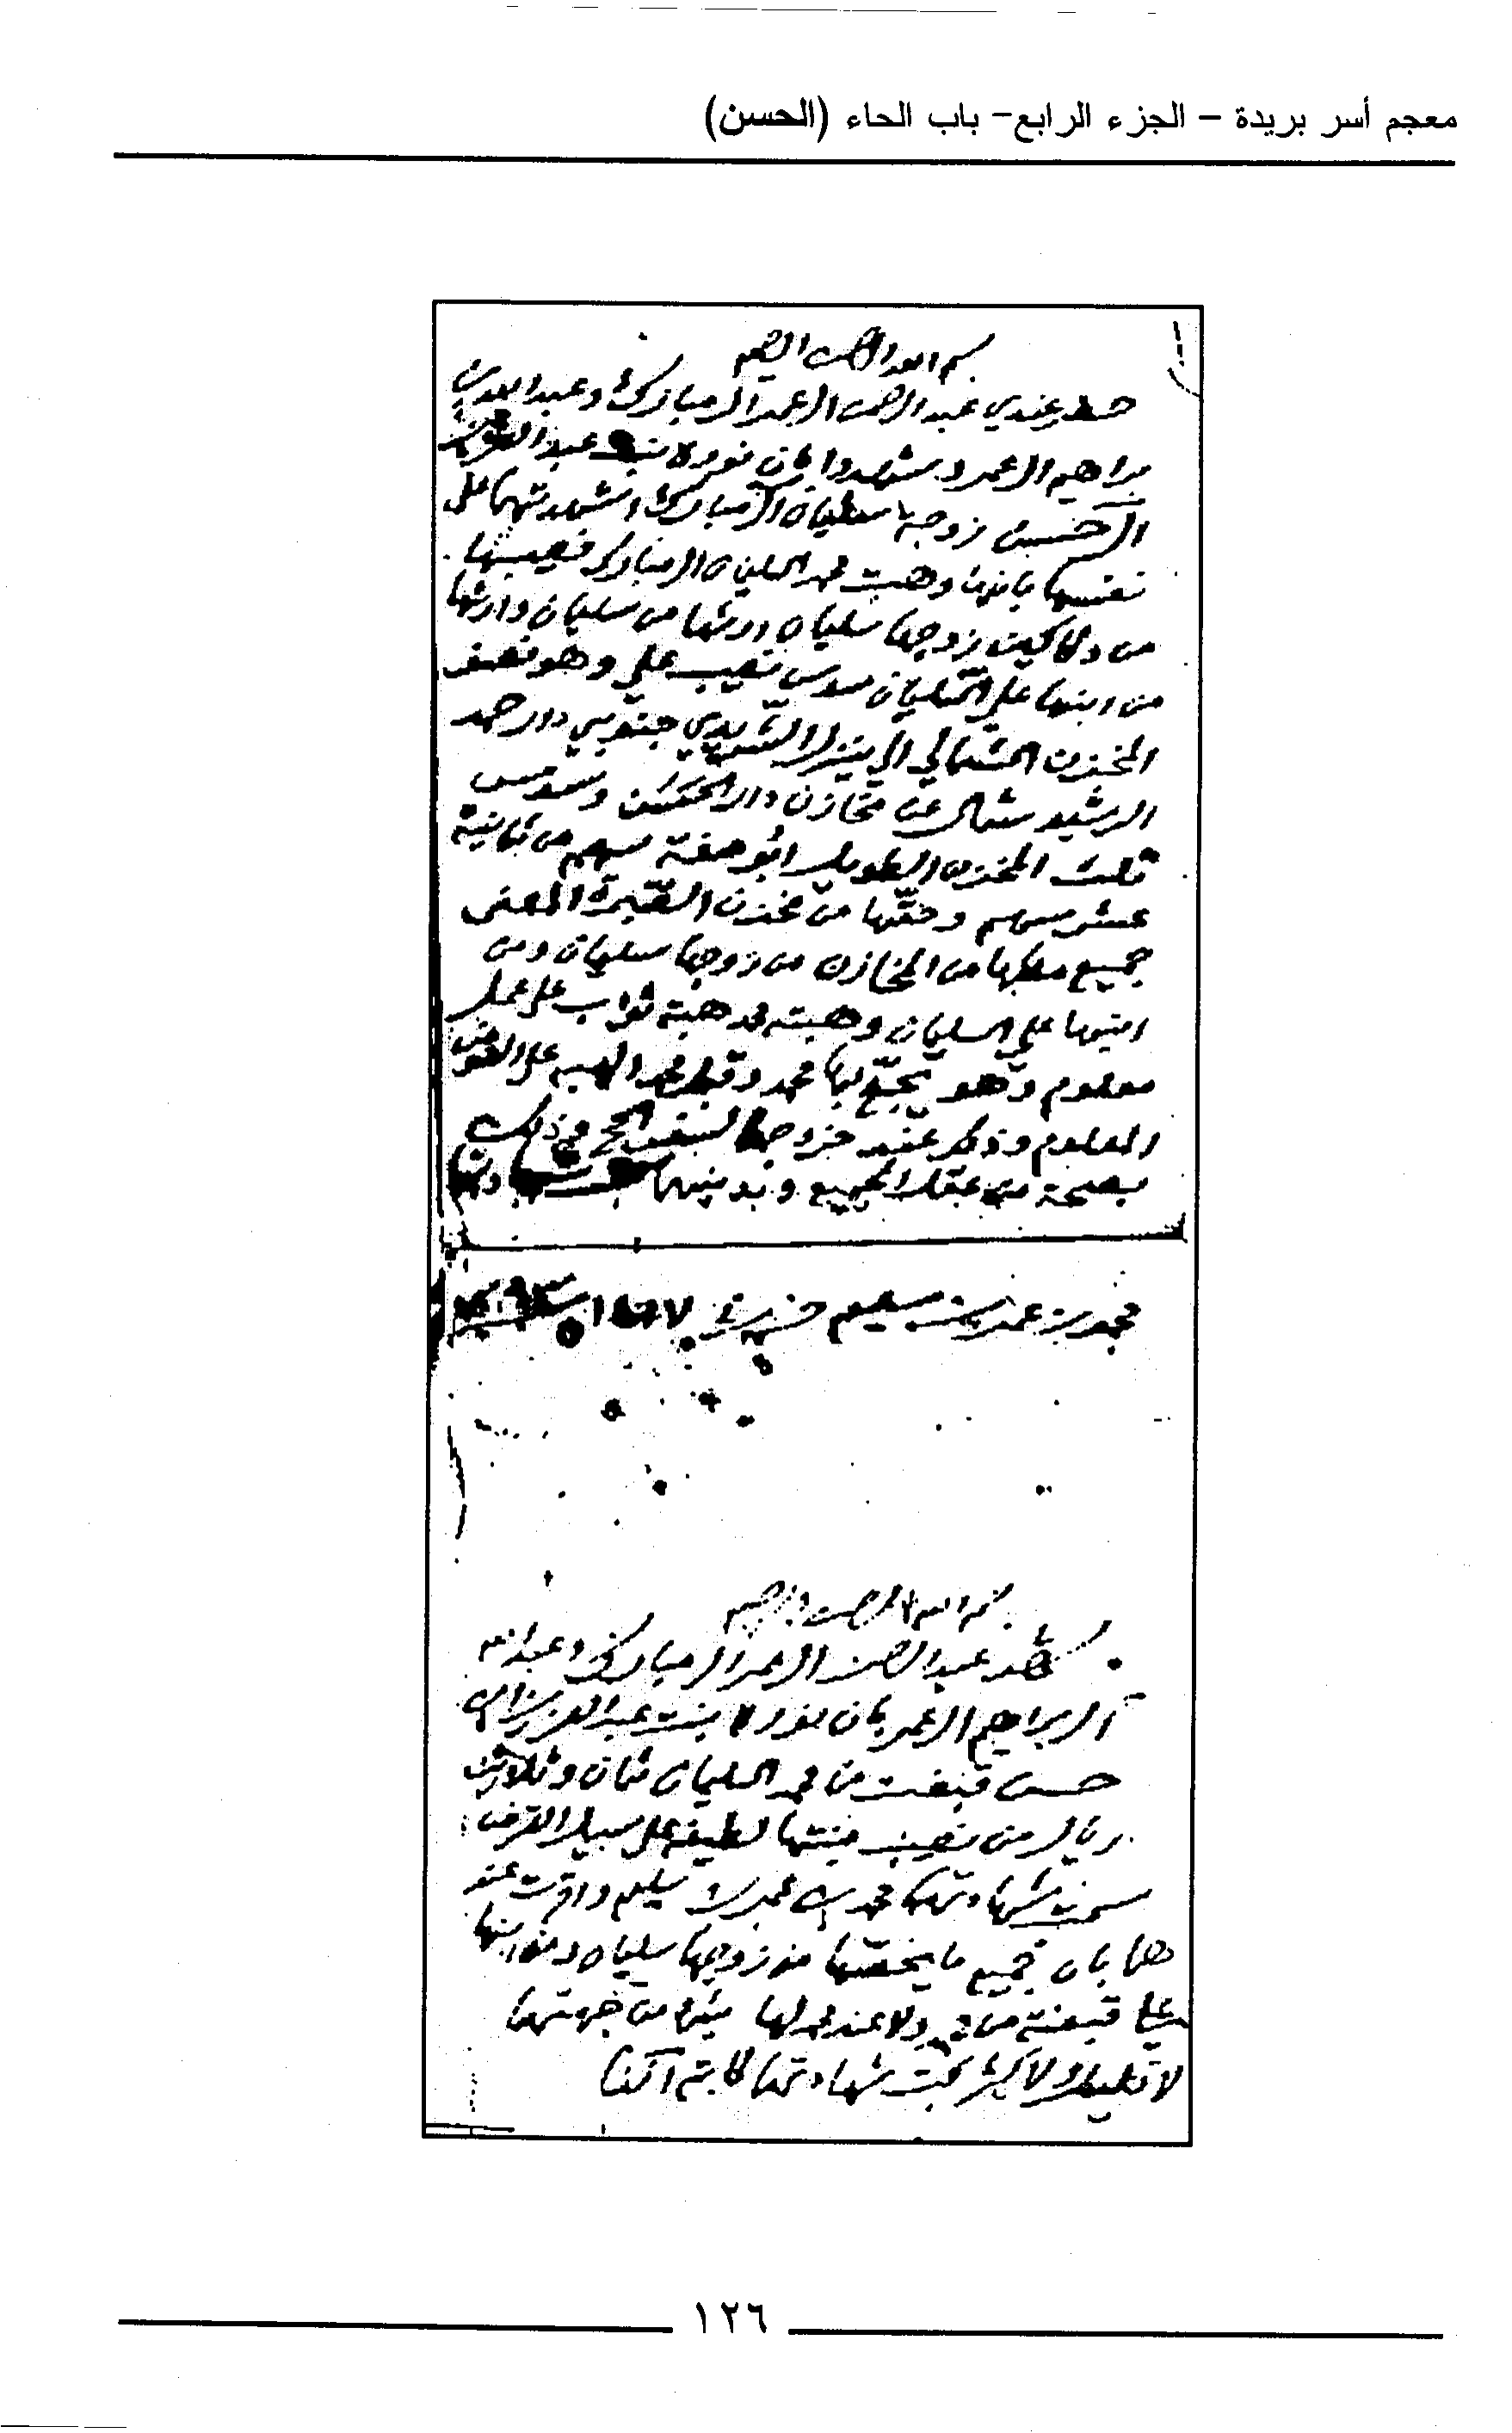 معجم أسر بريدة – الجزء الرابع– باب الحاء (الحسن)
بسم الله الرحمن الرحيم
حضر عندي عبدالرحمن العمر المبارك وعبدالله بن
براهيم العمر وشهدوا بان نوره بنت عبدالعزيز
الحسن زوجة سليمان المبارك اشهدتهما على
نفسها بانها وهبت محمد السليمان المبارك نصيبها
من دكاكين زوجها سليمان ارثها من سليمان وارثها
من ابنها علي السليمان سدس نصيب علي وهو نصف
المخزن الشمالي الى ينزله الشريدي جنوبي دار حمد
الرشيد شمال عن مخازن دار الحسن وسدس
ثلث المخزن الطويل ابو صفة سهم من ثمانية
عشر سهم وحقها من مخزن القبيرة المعنى
جميع ملكها من المخازن من زوجها سليمان ومن
ابنها علي السليمان وهبته محمد هبة ثواب على عمل
معلوم وهو يحجج بها محمد وقبل محمد الهبه على العوض
المعلوم وذكر عنه خروجها لسفر الحج في ذلك
بصحة من عقل الجميع وبدينهما
محمد بن عمر بن سليم ١٣٦٧
بسم الله الرحمن الرحيم
شهد عبدالرحمن العمر المبارك وعبدالله
البراهيم العمر بان نوره بنت عبدالعزيز ال
حسن قبضت من محمد السليمان ثمان وثلاثين
ريال من نصيب بنتها لطيفه على سبيل القرض
محمد بن عمر بن سليم واقرت عند
هما بان جميع ما يخصها من زوجها سليمان ومن ابنها
علي قبضته من محمد ولا عند محمد لها شيء من جهتهما
لا قليل ولا كثير كتب شهادتهما كاتبه آنفا
١٢٦